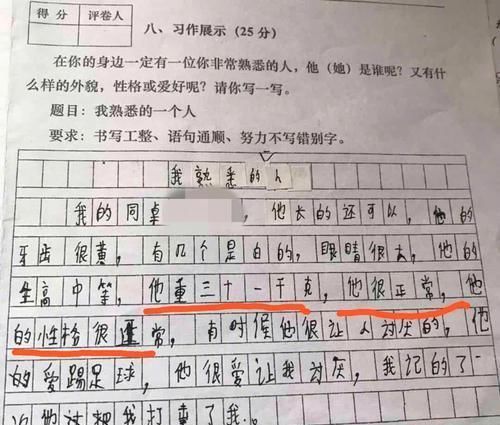 得分 评卷人
八、习作展示（25分）
在你的身边一定有一位你非常熟悉的人，他（她）是谁呢？又有什
么样的外貌，性格或爱好呢？请你写一写。
题目：我熟悉的一个人
要求：书写工整、语句通顺、努力不写错别字。
我熟悉的人
我的同桌，他长的还可以，他的
牙齿很黄，有几个是白的，眼睛很大，他的
生高中等，他重三十一千克，他很正常，他
的性格很正常，有时候他很让人讨厌的，他
的爱踢足球，他很爱让我讨厌，我记的了一
次他过把我打重了我。